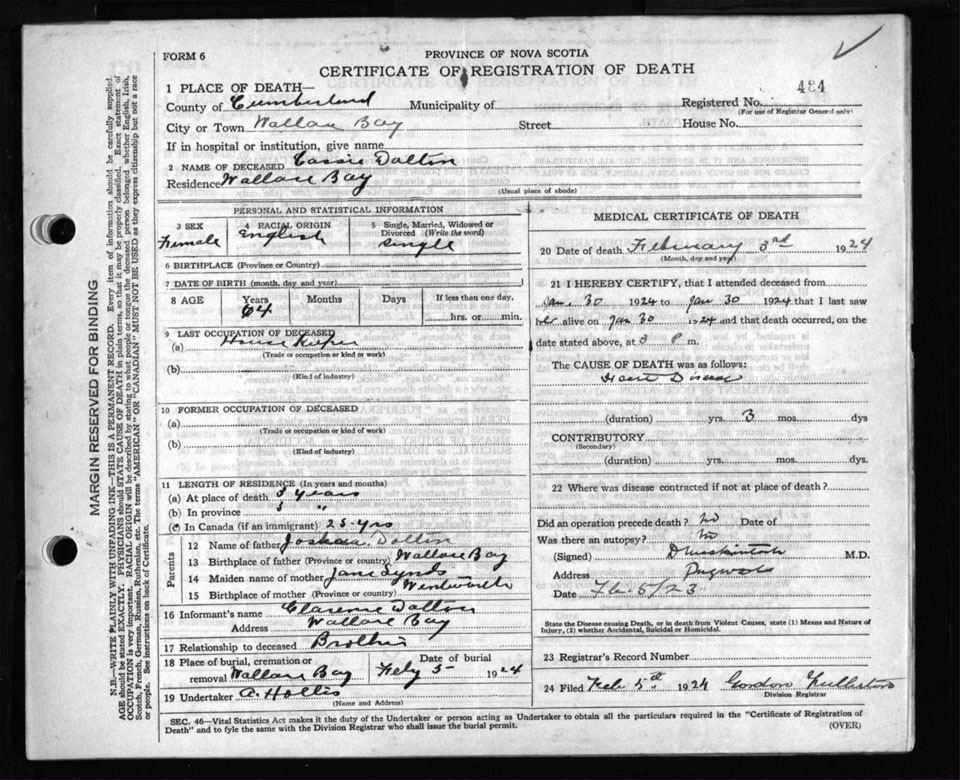 FORM 6
PROVINCE OF NOVA SCOTIA
CERTIFICATE OF REGISTRATION OF DEATH
1 PLACE OF DEATH—
484
County of Cumberland Municipality of Registered No.
(For use of Registrar General only)
City or Town Wallace Bay Street House No.
If in hospital or institution, give name
2 NAME OF DECEASED Cassie Dalton
Residence Wallace Bay
(Usual place of abode)
PERSONAL AND STATISTICAL INFORMATION
3 SEX
Female
4 RACIAL ORIGIN
English
5 Single, Married, Widowed or Divorced (Write the word)
Single
6 BIRTHPLACE (Province or Country)
7 DATE OF BIRTH (month, day and year)
8 AGE Years Months Days If less than one day,
64 hrs. or min.
9 LAST OCCUPATION OF DECEASED
(a) House Keeper
(Trade or occupation or kind or work)
(b)
(Kind of industry)
10 FORMER OCCUPATION OF DECEASED
(a)
(Trade or occupation or kind of work)
(b)
(Kind of industry)
11 LENGTH OF RESIDENCE (In years and months)
(a) At place of death 3 years
(b) In province "
(c) In Canada (if an immigrant) 25 yrs
Parents
12 Name of father Joshua Dalton
13 Birthplace of father (Province or country) Wallace Bay
14 Maiden name of mother Jane Synds
15 Birthplace of mother (Province or country) Wentworth
16 Informant's name Clarence Dalton
Address Wallace Bay
17 Relationship to deceased Brother
18 Place of burial, cremation or removal Wallace Bay
Date of burial
Feby 5 1924
19 Undertaker A. Hollis
(Name and Address)
MEDICAL CERTIFICATE OF DEATH
20 Date of death February 3rd 1924
(Month, day and year)
21 I HEREBY CERTIFY, that I attended deceased from
Jan. 30 1924 to Jan 30 1924 that I last saw
her alive on Jan 30 1924 and that death occurred, on the
date stated above, at 8 P m.
The CAUSE OF DEATH was as follows:
Heart Disease
(duration) yrs. 3 mos. dys
CONTRIBUTORY
(Secondary)
(duration) yrs. mos. dys.
22 Where was disease contracted if not at place of death?
Did an operation precede death? no Date of
Was there an autopsy? no
(Signed) M.D.
Address Pugwash
Date Feb. 5/23
State the Disease causing Death, or in death from Violent Causes, state (1) Means and Nature of Injury, (2) whether Accidental, Suicidal or Homicidal.
23 Registrar's Record Number
24 Filed Feb 5th 1924 Gordon
Division Registrar
SEC. 46—Vital Statistics Act makes it the duty of the Undertaker or person acting as Undertaker to obtain all the particulars required in the "Certificate of Registration of
Death" and to fyle the same with the Division Registrar who shall issue the burial permit.
(OVER)
MARGIN RESERVED FOR BINDING
N.B.—WRITE PLAINLY WITH UNFADING INK—THIS IS A PERMANENT RECORD. Every item of information should be carefully supplied.
AGE should be stated EXACTLY. PHYSICIANS should STATE CAUSE OF DEATH in plain terms, so that it may be properly classified. Exact statement of
OCCUPATION is very important. RACIAL ORIGIN will be described by stating to what people or tongue the deceased person belonged whether English, Irish,
Scotch, French, German, Russian, Ruthenian, etc. The terms "AMERICAN" OR "CANADIAN" MUST NOT BE USED as they express citizenship but not a race
or people. See instructions on back of Certificate.